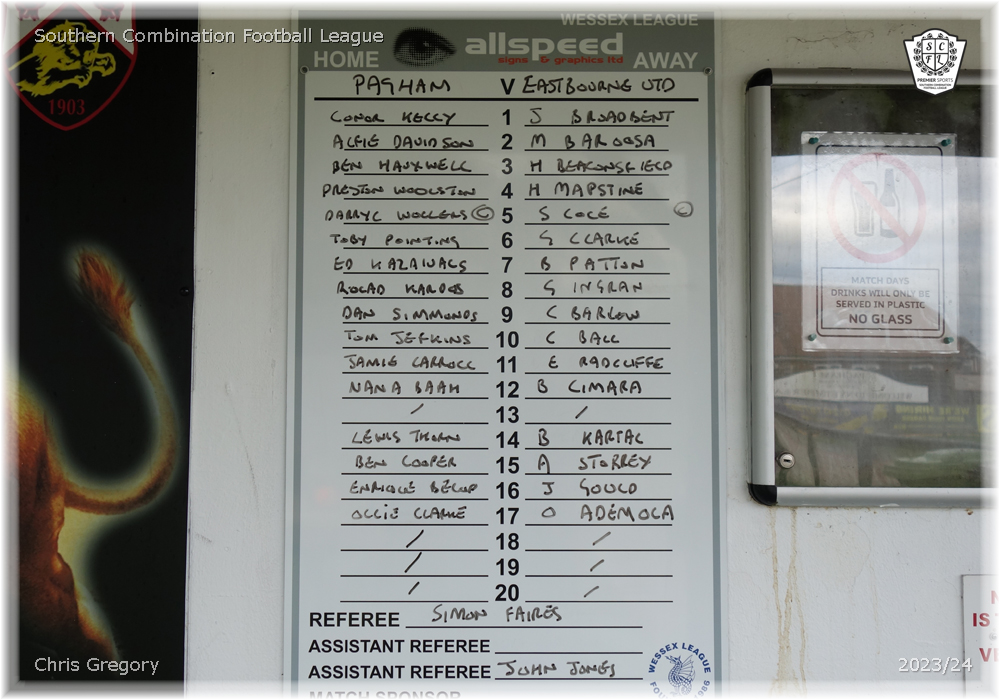 WESSEX LEAGUE
Southern Combination Football League
1903
HOME allspeed AWAY
signs & graphics ltd
S C F L
PREMIER SPORTS
SOUTHERN COMBINATION
FOOTBALL LEAGUE
PAGHAM V EASTBOURNE UTD
CONOR KELLY 1 J BROADBENT
ALFIE DAVIDSON 2 M BARBOSA
BEN HANXWELL 3 H BEACONSFIELD
PRESTON WOOLSTON 4 H MAPSTINE
DARRYL WOLLERS C 5 S COLE C
TOBY POINTING 6 G CLARKE
ED KAZAIWALS 7 B PATTON
8 G INGRAN
DAN SIMMONDS 9 C BARLOW
TOM JEFKINS 10 C BALL
JAMIE CARROLL 11 E RADCLIFFE
NANA BAAH 12 B CIMARA
/ 13 /
LEWIS THORN 14 B KARTAL
BEN COOPER 15 A STORREY
ENRIQUE 16 J GOULD
OLLIE CLARKE 17 O ADEMOLA
/ 18 /
/ 19 /
/ 20 /
REFEREE SIMON FAIRES
ASSISTANT REFEREE
ASSISTANT REFEREE JOHN JONES
MATCH SPONSOR
WESSEX LEAGUE
MATCH DAYS
DRINKS WILL ONLY BE
SERVED IN PLASTIC
NO GLASS
N
IS
VI
Chris Gregory
2023/24